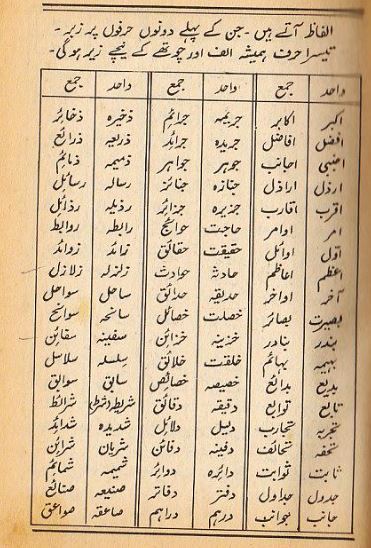 الفاظ آتے ہیں - جن کے پہلے دونوں حرفوں پر زبر -
تیسرا حرف ہمیشہ الف اور چوتھے کے نیچے زیر ہوگی -
واحد جمع واحد جمع واحد جمع
اکبر اکابر جریمہ جرائم ذخیرہ ذخائر
افضل افاضل جریدہ جرائد ذریعہ ذرائع
اجنبی اجانب جوہر جواہر ذمیمہ ذمائم
ارذل اراذل جنازہ جنائز رسالہ رسائل
اقرب اقارب جزیرہ جزائر رذیلہ رذائل
امر اوامر حاجت حوائج رابطہ روابط
اول اوائل حقیقت حقائق زائد زوائد
اعظم اعاظم حادثہ حوادث زلزلہ زلازل
آخر اواخر حدیقہ حدائق ساحل سواحل
بصیرت بصائر خصلت خصائل سانحہ سوانح
بندر بنادر خزینہ خزائن سفینہ سفائن
بہیمہ بہائم خلقت خلائق سلسلہ سلاسل
بدیع بدائع خصیصہ خصائص سابق سوابق
تابع توابع دقیقہ دقائق شریطہ(شرط) شرائط
تجربہ تجارب دلیل دلائل شدیدہ شدائد
تحفہ تحائف دفینہ دفائن شریان شرائن
ثابت ثوابت دائرہ دوائر شمیمہ شمائم
جدول جداول دفتر دفاتر صنیعہ صنائع
جانب جوانب درہم دراہم صاعقہ صواعق